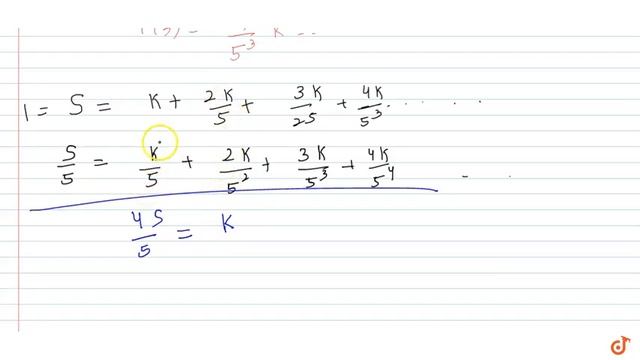 5³ K ...
1 = S = K + 2K/5 + 3K/25 + 4K/5³ .......
S/5 = K/5 + 2K/5² + 3K/5³ + 4K/5⁴ - .
4S/5 = K
doubtnut